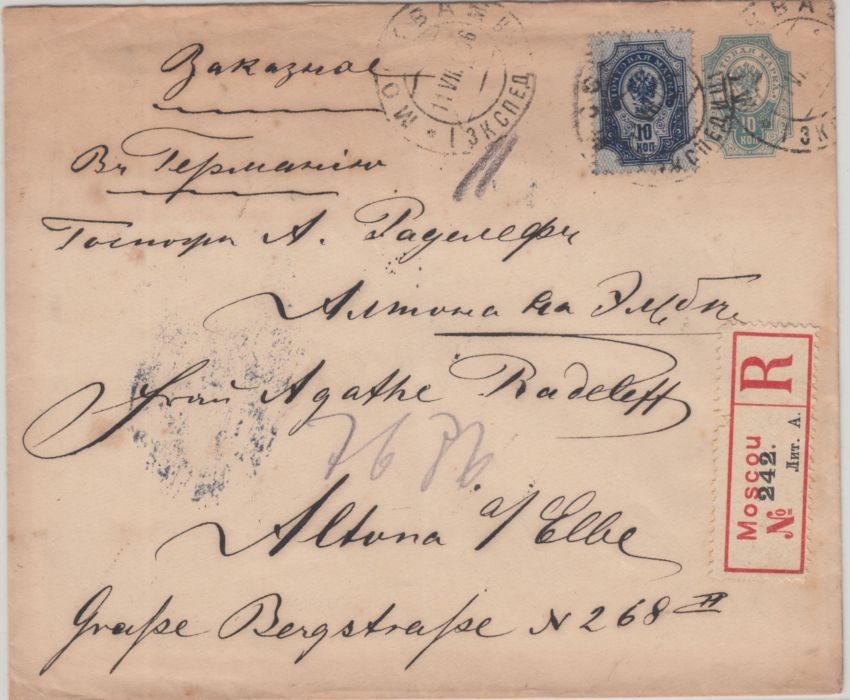 Заказное
Въ Германію
А. Раделефъ
Алтона на Эльбѣ
Frau Agathe Radeleff
Altona a/Elbe
Große Bergstraße N 268 II
ПОЧТОВАЯ МАРКА
10
КОП
ПОЧТОВАЯ МАРКА
10
КОП
МОСКВА
1 ЭКСПЕД
ЭКСПЕДИЦ
R
Moscou
№ 242.
Лит. А.